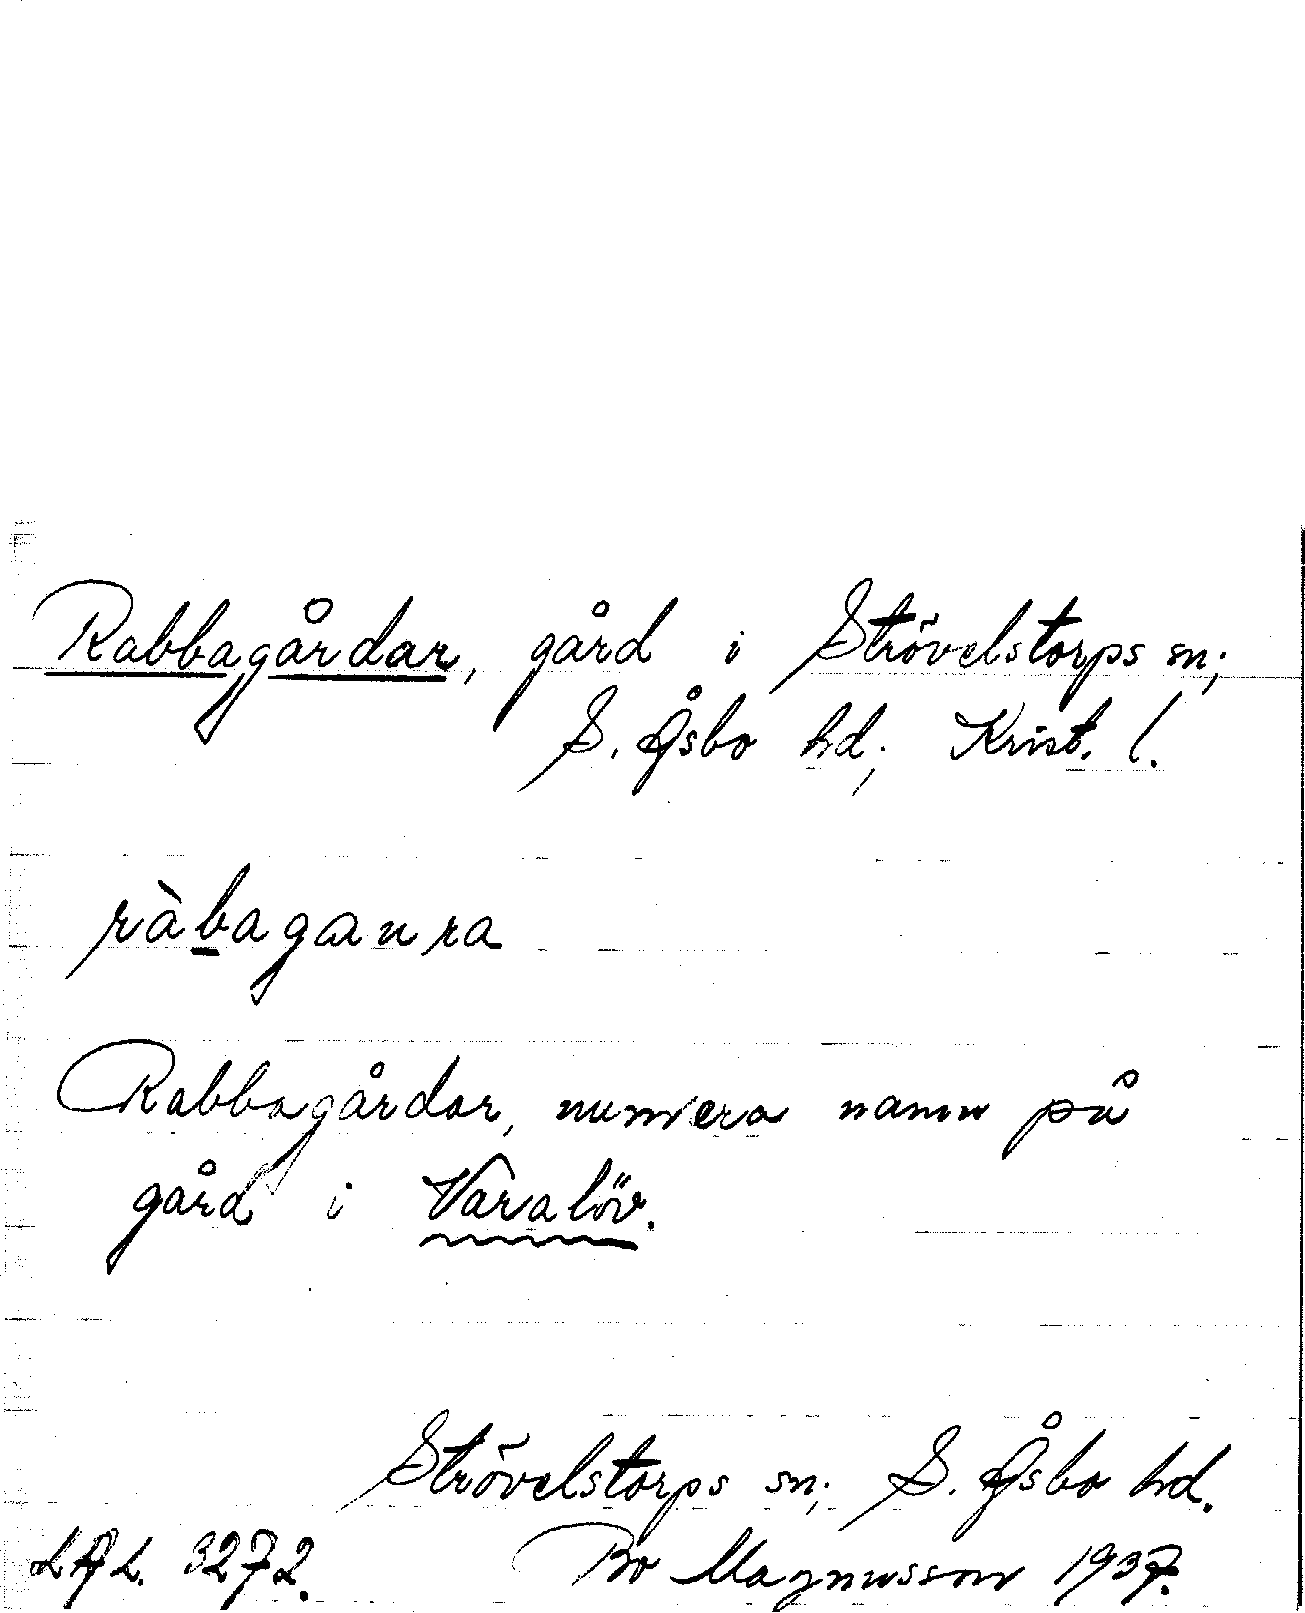 Rabbagårdar, gård i Strövelstorps sn;
S. Åsbo hd; Krist. l.
ràbagaura
Rabbagårdar, numera namn på
gård i Varalöv.
Strövelstorps sn; S. Åsbo hd.
LAL. 3272. Bo Magnusson 1937.